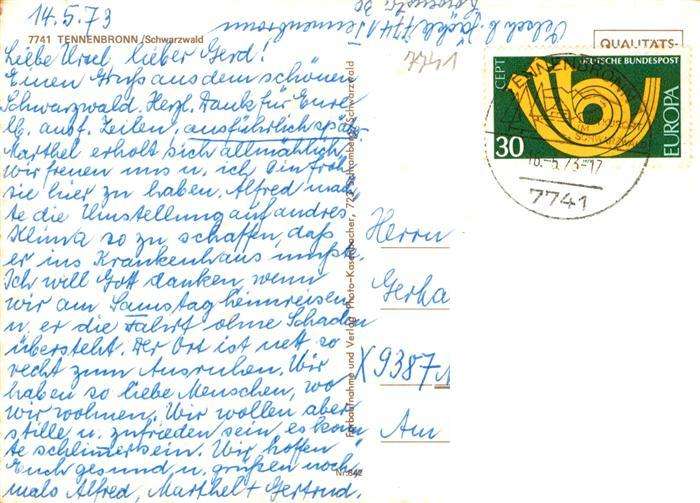 14.5.73
7741 TENNENBRONN /Schwarzwald
7741
Liebe Ursel, lieber Gerd!
Einen Gruß aus dem schönen
Schwarzwald. Herzl. Dank für Eure
lb. ausf. Zeilen, ausführlich spät.
Marthel erholt sich allmählich
wir freuen uns u. ich bin froh
sie hier zu haben. Alfred mach
te die Umstellung auf andres
Klima so zu schaffen, daß
er ins Krankenhaus mußte.
Ich will Gott danken, wenn
wir am Samstag heimreisen
u. er die Fahrt ohne Schaden
übersteht. Der Ort ist nett so
recht zum Ausruhen. Wir
haben so liebe Menschen, wo
wir wohnen. Wir wollen aber
stille u. zufrieden sein es könn
te schlimmer sein. Wir hoffen
Euch gesund u. grüßen noch
mals Alfred, Marthel + Gertrud.
Farbaufnahme und Verlag Photo-Kasenbacher, 723 Schramberg/Schwarzwald
Nr. 842
QUALITÄTS-
CEPT
DEUTSCHE BUNDESPOST
EUROPA
30
TENNENBRONN
IM
SCHWARZWALD
16.-5.73-17
7741
Herrn
Gerha
X9387
Am